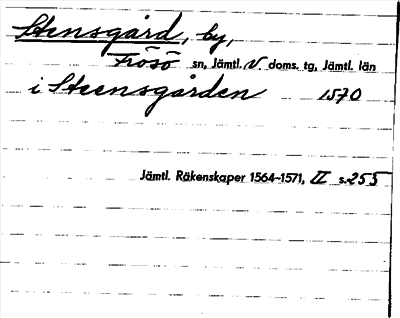 Stensgård, by,
Frösö sn, Jämtl. V doms. tg, Jämtl. län
i Steensgården 1570
Jämtl. Räkenskaper 1564-1571, II s. 255